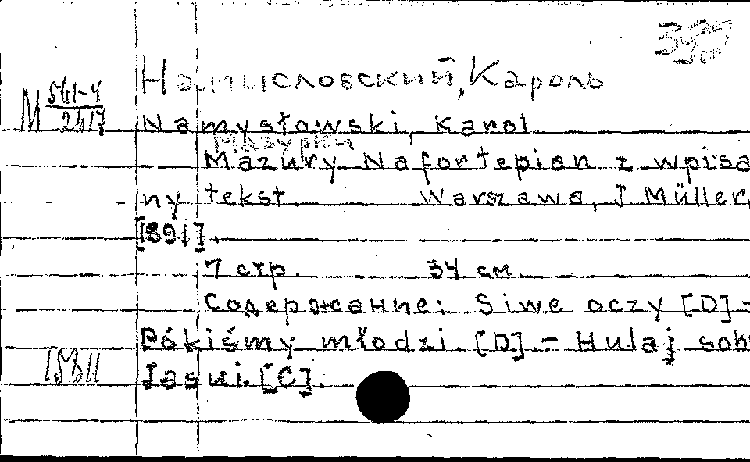 Намысловский, Кароль
М 561-4
2417
Namysłowski, Karol
Мазурки
Mazury Na fortepian z wpisa
ny tekst Warszawa, J Müller,
[891].
7 стр. 34 см.
Содержание: Siwe oczy [D] –
Pókiśmy młodzi. [D] – Hulaj sob
Jasiu. [C].